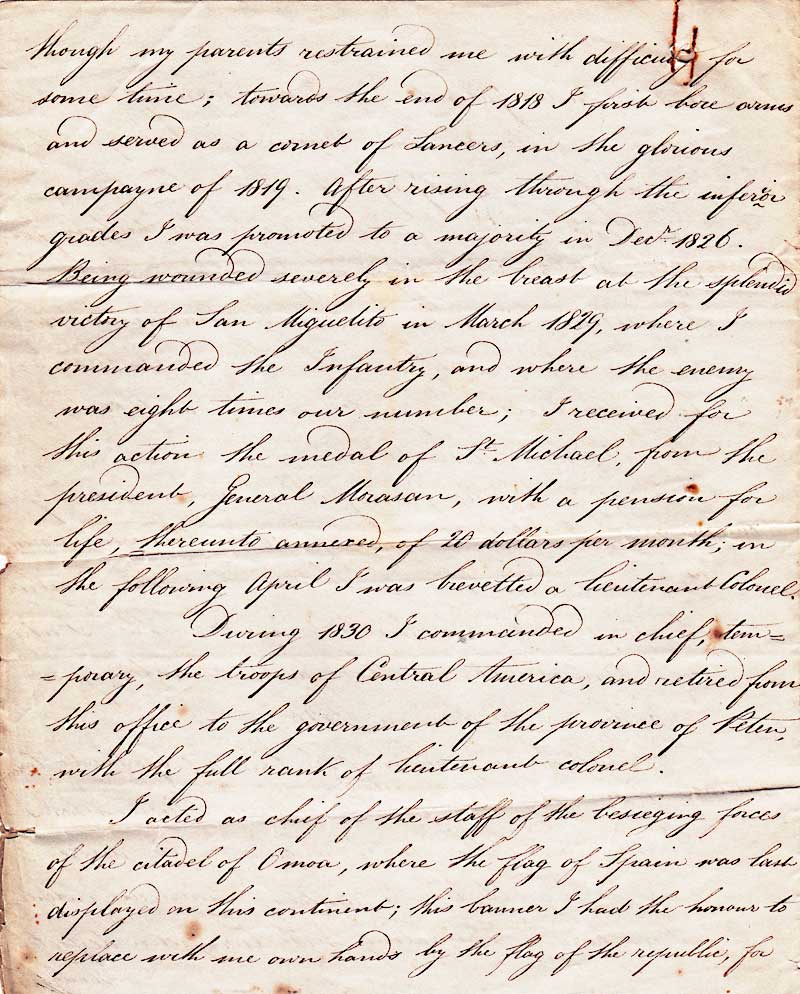 though my parents restrained me with difficulty for
some time; towards the end of 1818 I first bore arms
and served as a cornet of Lancers, in the glorious
campayne of 1819. After rising through the inferior
grades I was promoted to a majority in Decr. 1826.
Being wounded severely in the breast at the splendid
victory of San Miguelito in March 1829, where I
commanded the Infantry, and where the enemy
was eight times our number; I received for
this action the medal of St. Michael, from the
president, General Morasan, with a pension for
life, thereunto annexed, of 20 dollars per month; in
the following April I was brevetted a lieutenant Colonel.
During 1830 I commanded in chief, tem=
=porary, the troops of Central America, and retired from
this office to the government of the province of Peten,
with the full rank of lieutenant colonel.
I acted as chief of the staff of the besieging forces
of the citadel of Omoa, where the flag of Spain was last
displayed on this continent; this banner I had the honour to
replace with me own hands by the flag of the republic, for